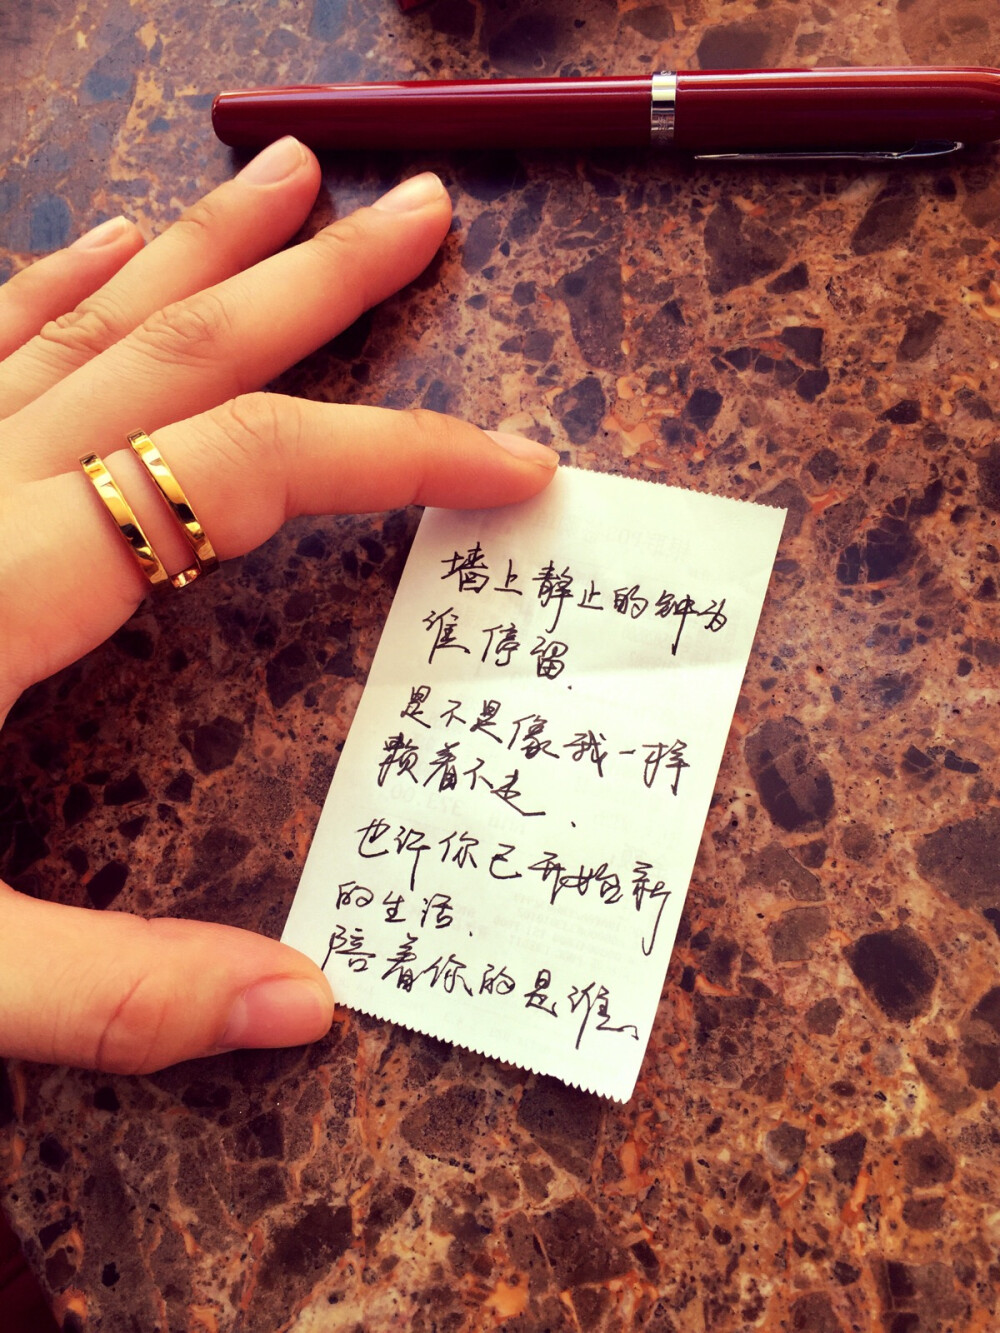 墙上静止的钟为
谁停留.
是不是像我一样
赖着不走.
也许你已开始新
的生活.
陪着你的是谁。